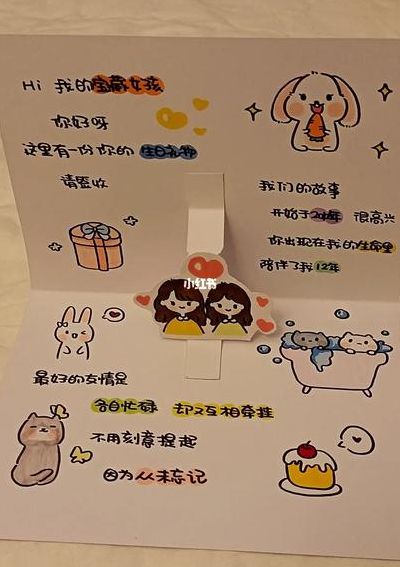 Hi 我的宝藏女孩
你好呀
这里有一份你的 生日礼物
请签收
我们的故事
开始于 年 很高兴
你出现在我的生命里
陪伴了我12年
小红书
最好的友情是
各自忙碌 却又互相牵挂
不用刻意提起
因为从未忘记